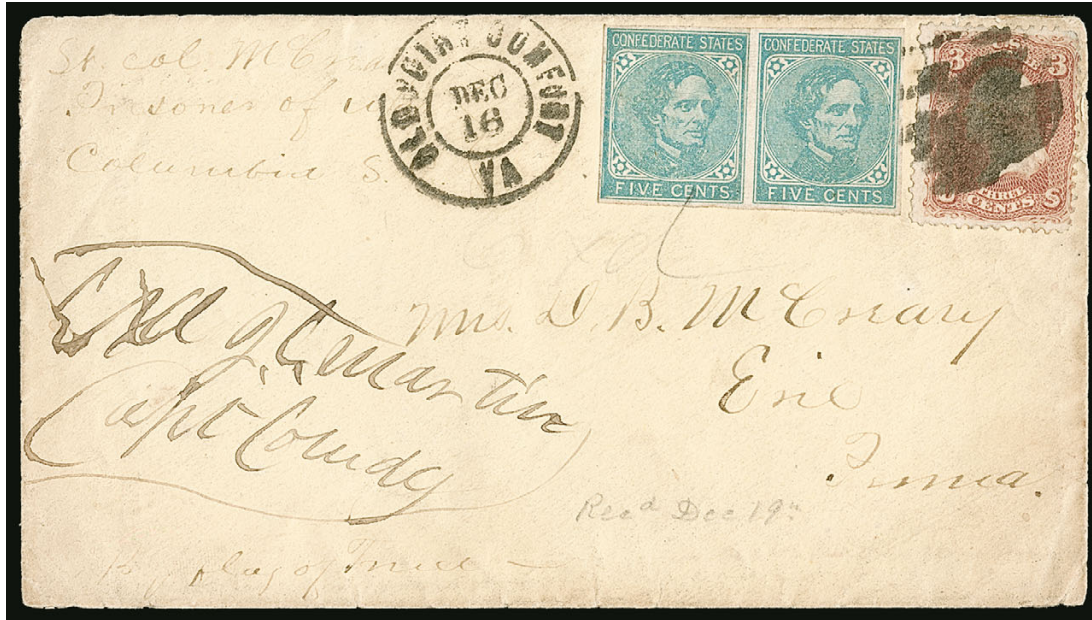 Lt. col. McCrea
Prisoner of
Columbia S.
OLD POINT COMFORT
DEC
16
VA
CONFEDERATE STATES
FIVE CENTS
CONFEDERATE STATES
FIVE CENTS
3 U.S. 3
THREE
CENTS
S
Exd
Exd J. C. Martin
Capt Comdg
Mrs. D. B. McCreary
Erie
Penna.
Recd Dec 19th
By flag of Truce